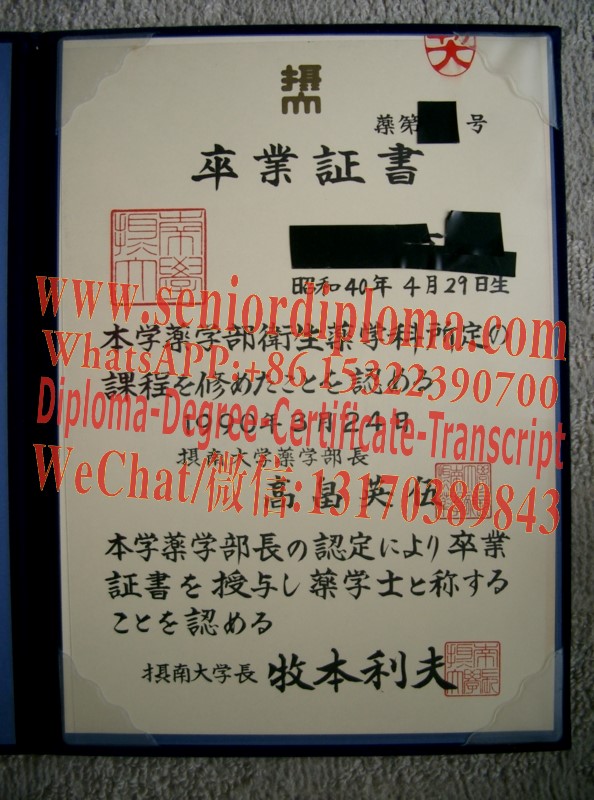 摂大
薬第 号
卒業証書
昭和40年4月29日生
www.seniordiploma.com
本学薬学部衛生薬学科所定の
WhatsAPP:+86 15322390700
課程を修めたことを認める
Diploma-Degree-Certificate-Transcript
1990年3月24日
摂南大学薬学部長
WeChat/微信:13170389843
高畠英伍
本学薬学部長の認定により卒業
証書を授与し薬学士と称する
ことを認める
摂南大学長 牧本利夫